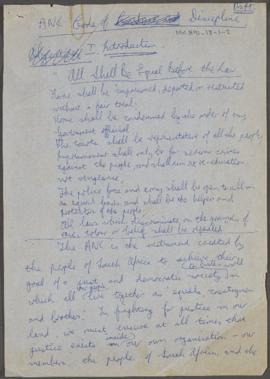 Draft
ANC Code of Discipline
MCH 890-13-1-2
I Introduction
All Shall Be Equal Before the Law
None shall be imprisoned, deported or restricted
without a fair trial;
None shall be condemned by the order of any
Government official;
The courts shall be representative of all the people;
Imprisonment shall only be for serious crimes
against the people, and shall aim at re-education,
not vengeance;
The police force and army shall be open to all on
an equal basis and shall be the helpers and
protectors of the people;
The laws which discriminate on the grounds of
race, colour or belief shall be repealed.
The ANC is the instrument created by
the people of South Africa to achieve their
goal of a just and democratic society in
which all live together as equals,
and brothers. In fighting for justice in our
land, we must ensure at all times that
justice exists inside our own organisation - our
members, the people of South Africa, and the